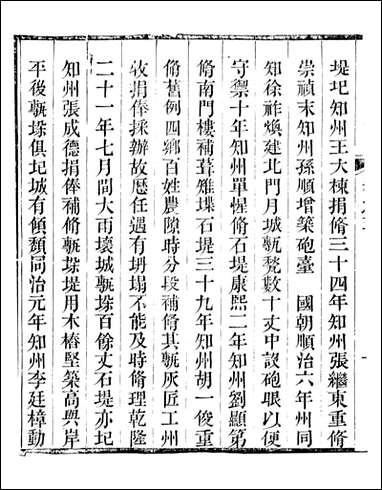 堤圮知州王大棟捐脩三十四年知州張繼東重脩
崇禎末知州孫順增築砲臺　國朝順治六年州同
知徐祚煥建北門月城甎甃數十丈中設砲眼以便
守禦十年知州單惺脩石堤康熙二年知州劉顯第
脩南門樓補葺雉堞石堤三十九年知州胡一俊重
脩舊例四鄉百姓農隙時分段補脩其甎灰匠工州
牧捐俸採辦故歷任遇有坍塌不能及時脩理乾隆
二十一年七月間大雨壞城甎垜百餘丈石堤亦圮
知州張成德捐俸補脩甎垜堤用木樁堅築高與岸
平後甎垜俱圮城有傾頽同治元年知州李廷樟動